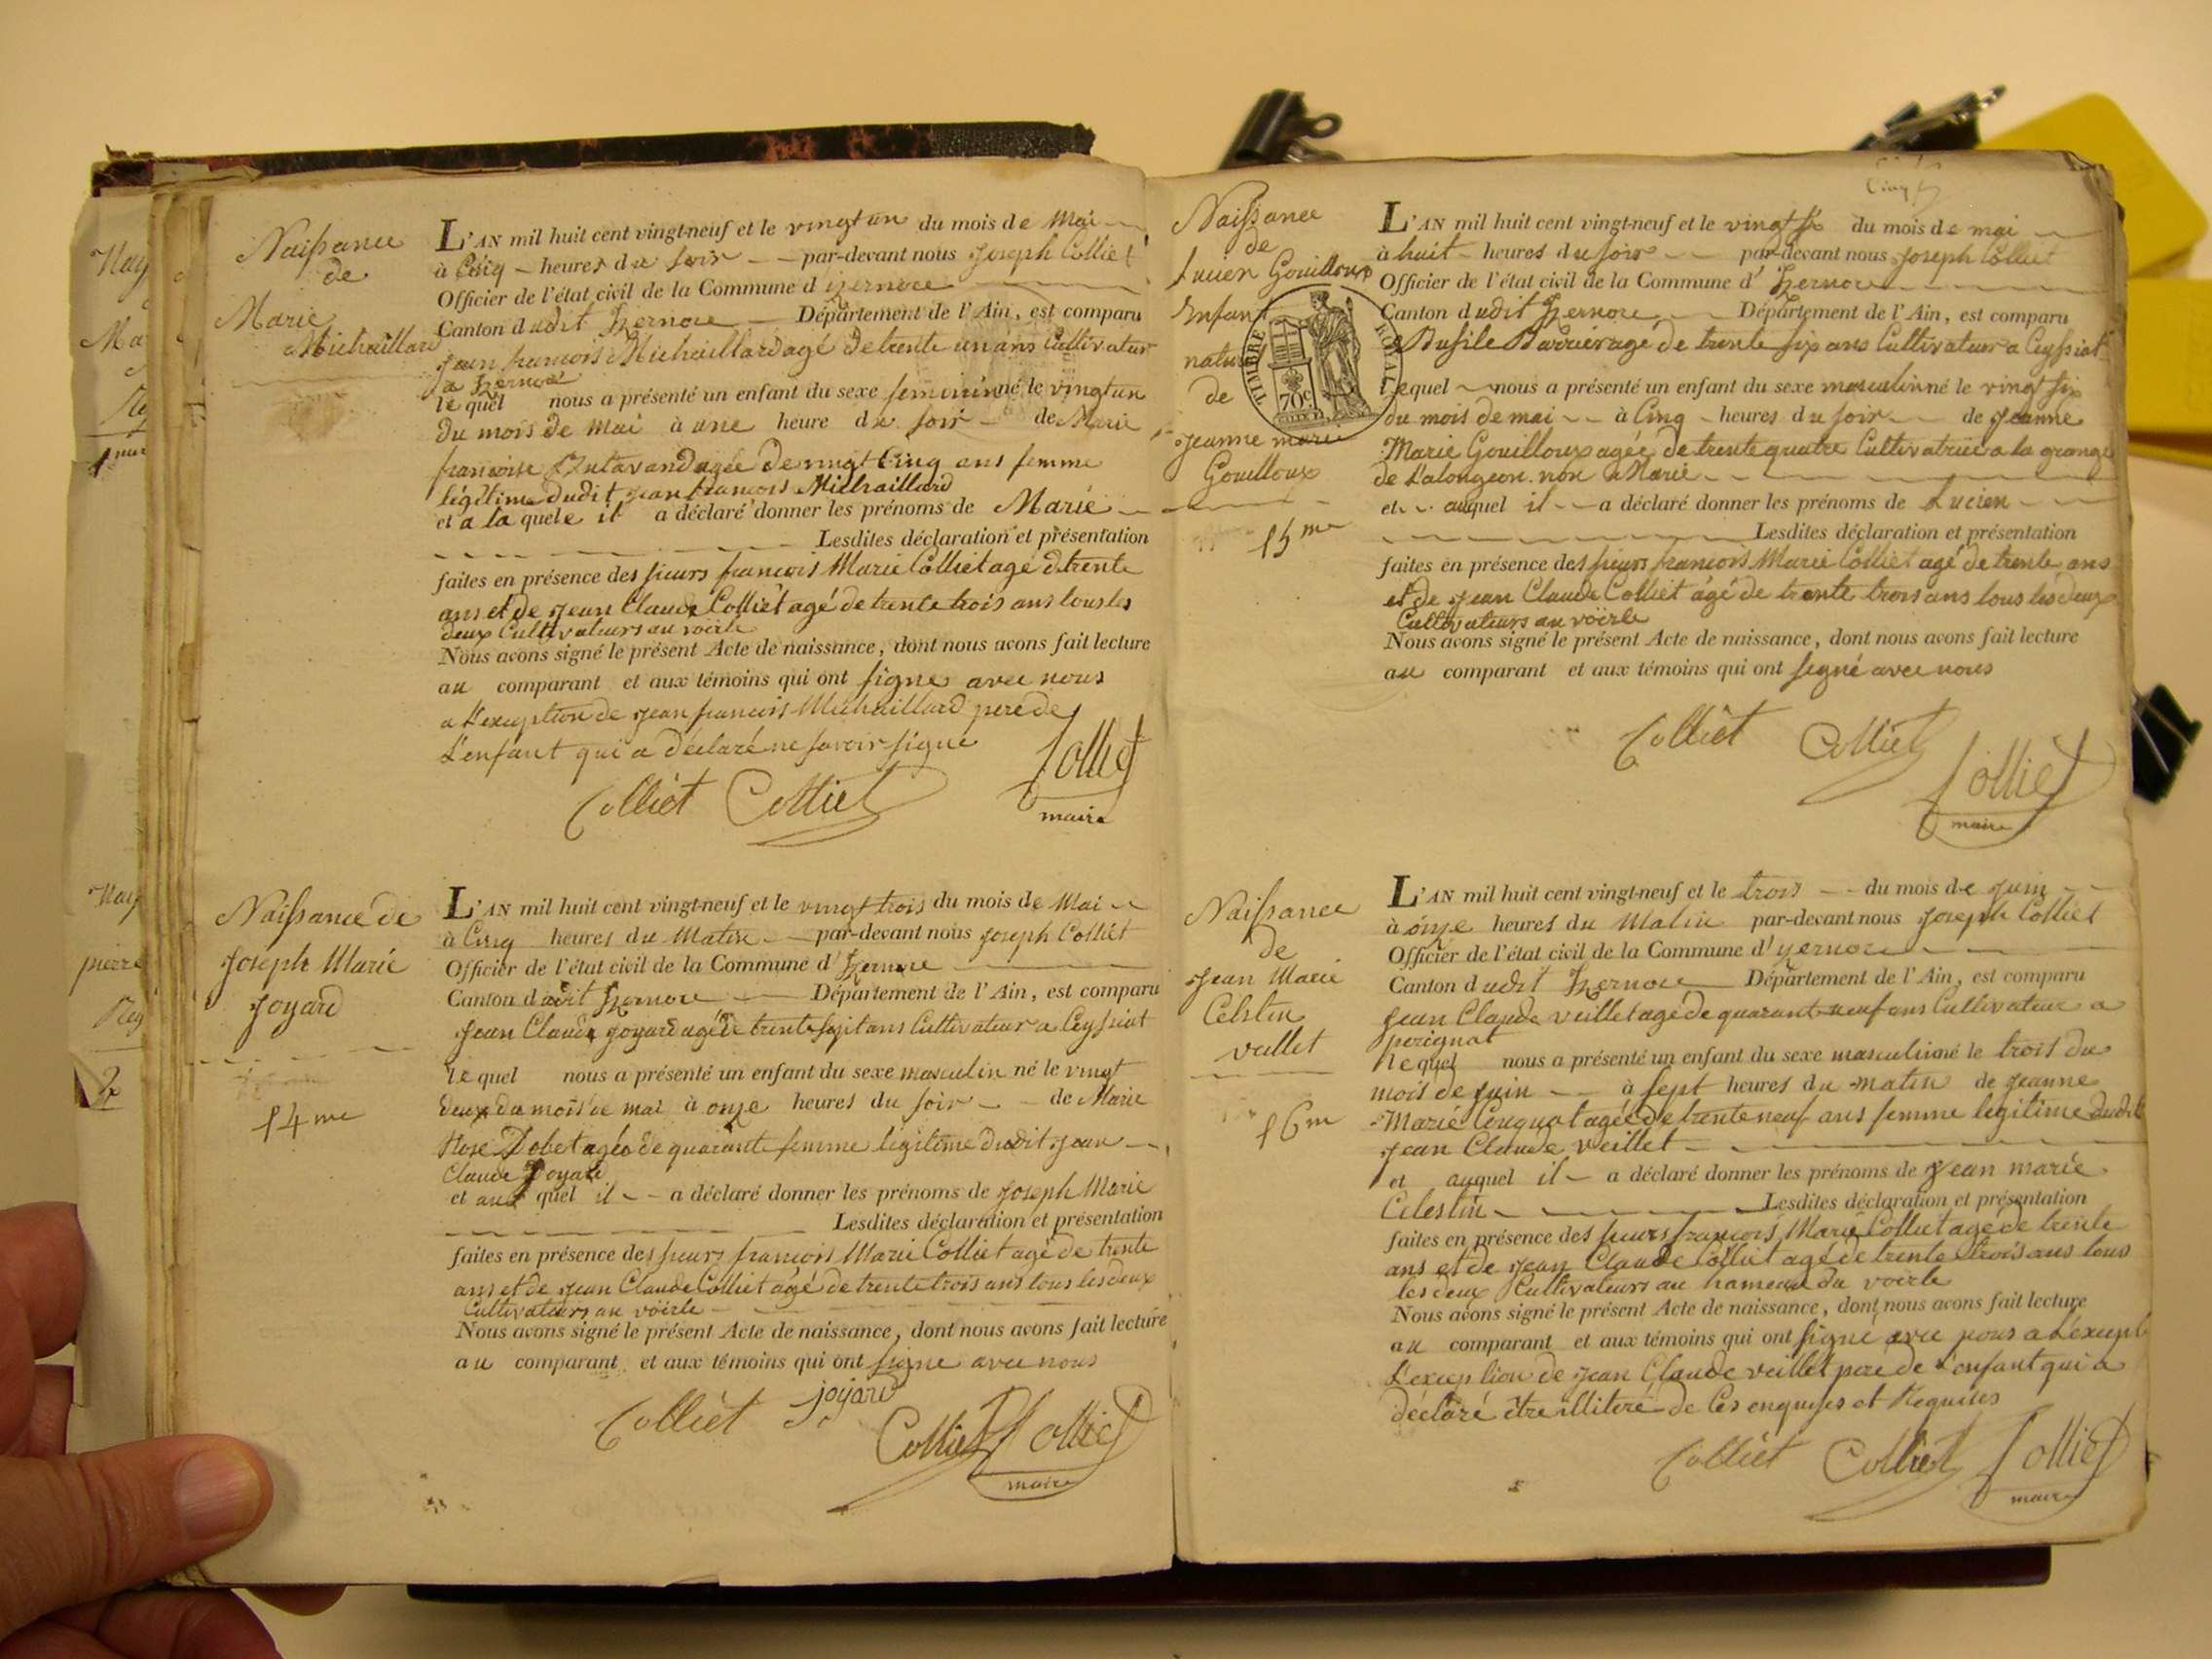 Naissance
de
Marie
Michaillard
L'AN mil huit cent vingt-neuf et le vingt un du mois de Mai
à Cinq heures du soir par-devant nous Joseph Colliet
Officier de l'état civil de la Commune d'izernore
Canton dudit Izernore Département de l'Ain, est comparu
Jean francois Michaillard agé de trente un ans Cultivateur
a Izernore
le quel nous a présenté un enfant du sexe feminin né le vingt un
du mois de Mai à une heure du soir de Marie
francoise agée de vingt Cinq ans femme
légitime dudit Jean francois Michaillard
et a la quele il a déclaré donner les prénoms de Marie
Lesdites déclaration et présentation
faites en présence des sieurs francois Marie Colliet agé de trente
ans et de Jean Claude Colliet agé de trente trois ans tous les
deux Cultivateurs au voerle
Nous avons signé le présent Acte de naissance, dont nous avons fait lecture
au comparant et aux témoins qui ont signe avec nous
a L'exception de Jean francois Michaillard pere de
L'enfant qui a déclaré ne savoir signé
Colliet Colliet Colliet
maire
Naissance de
Joseph Marie
Joyard
14me
L'AN mil huit cent vingt-neuf et le vingt trois du mois de Mai
à Cinq heures du Matin par-devant nous Joseph Colliet
Officier de l'état civil de la Commune d'Izernore
Canton dudit Izernore Département de l'Ain, est comparu
Jean Claude Joyard agé de trente sept ans Cultivateur a Ceyssiat
le quel nous a présenté un enfant du sexe masculin né le vingt
deux du mois de mai à onze heures du soir de Marie
Rose Dobet agée de quarante femme legitime dudit Jean
Claude Joyard
et au quel il a déclaré donner les prénoms de Joseph Marie
Lesdites déclaration et présentation
faites en présence des sieurs francois Marie Colliet agé de trente
ans et de Jean Claude Colliet agé de trente trois ans tous les deux
Cultivateurs au voerle
Nous avons signé le présent Acte de naissance, dont nous avons fait lecture
au comparant et aux témoins qui ont signe avec nous
joyard
Colliet Colliet Colliet
maire
Naissance
de
Lucien Gouilloux
Enfant
naturel
de
Jeanne marie
Gouilloux
15me
TIMBRE ROYAL
70c
L'AN mil huit cent vingt-neuf et le vingt six du mois de mai
à huit heures du soir par-devant nous Joseph Colliet
Officier de l'état civil de la Commune d'Izernore
Canton dudit Izernore Département de l'Ain, est comparu
Basile Barrier agé de trente six ans Cultivateur a Ceyssiat
Lequel nous a présenté un enfant du sexe masculin né le vingt six
du mois de mai à Cinq heures du soir de Jeanne
Marie Gouilloux agée de trente quatre Cultivatrice a la grange
de L'alongeon non Marie
et auquel il a déclaré donner les prénoms de Lucien
Lesdites déclaration et présentation
faites en présence des sieurs francois Marie Colliet agé de trente ans
et de Jean Claude Colliet agé de trente trois ans tous les deux
Cultivateurs au voerle
Nous avons signé le présent Acte de naissance, dont nous avons fait lecture
au comparant et aux témoins qui ont signé avec nous
Colliet Colliet Colliet
maire
Naissance
de
Jean Marie
Celestin
veillet
16m
L'AN mil huit cent vingt-neuf et le trois du mois de Juin
à onze heures du Matin par-devant nous Joseph Colliet
Officier de l'état civil de la Commune d'yzernore
Canton dudit Izernore Département de l'Ain, est comparu
Jean Claude veillet agé de quarant-neuf ans Cultivateur a
perignat
lequel nous a présenté un enfant du sexe masculin né le trois du
mois de juin à sept heures du matin de Jeanne
Marie agée de trente neuf ans femme legitime dudit
Jean Claude veillet
et auquel il a déclaré donner les prénoms de Jean marie
Celestin Lesdites déclaration et présentation
faites en présence des sieurs francois Marie Colliet agé de trente
ans et de Jean Claude Colliet agé de trente trois ans tous
les deux Cultivateurs au hameau du voerle
Nous avons signé le présent Acte de naissance, dont nous avons fait lecture
au comparant et aux témoins qui ont signé avec nous a L'except
L'exception de Jean Claude veillet pere de L'enfant qui a
déclaré être illiteré de Ces enquises et Requises
Colliet Colliet Colliet
maire